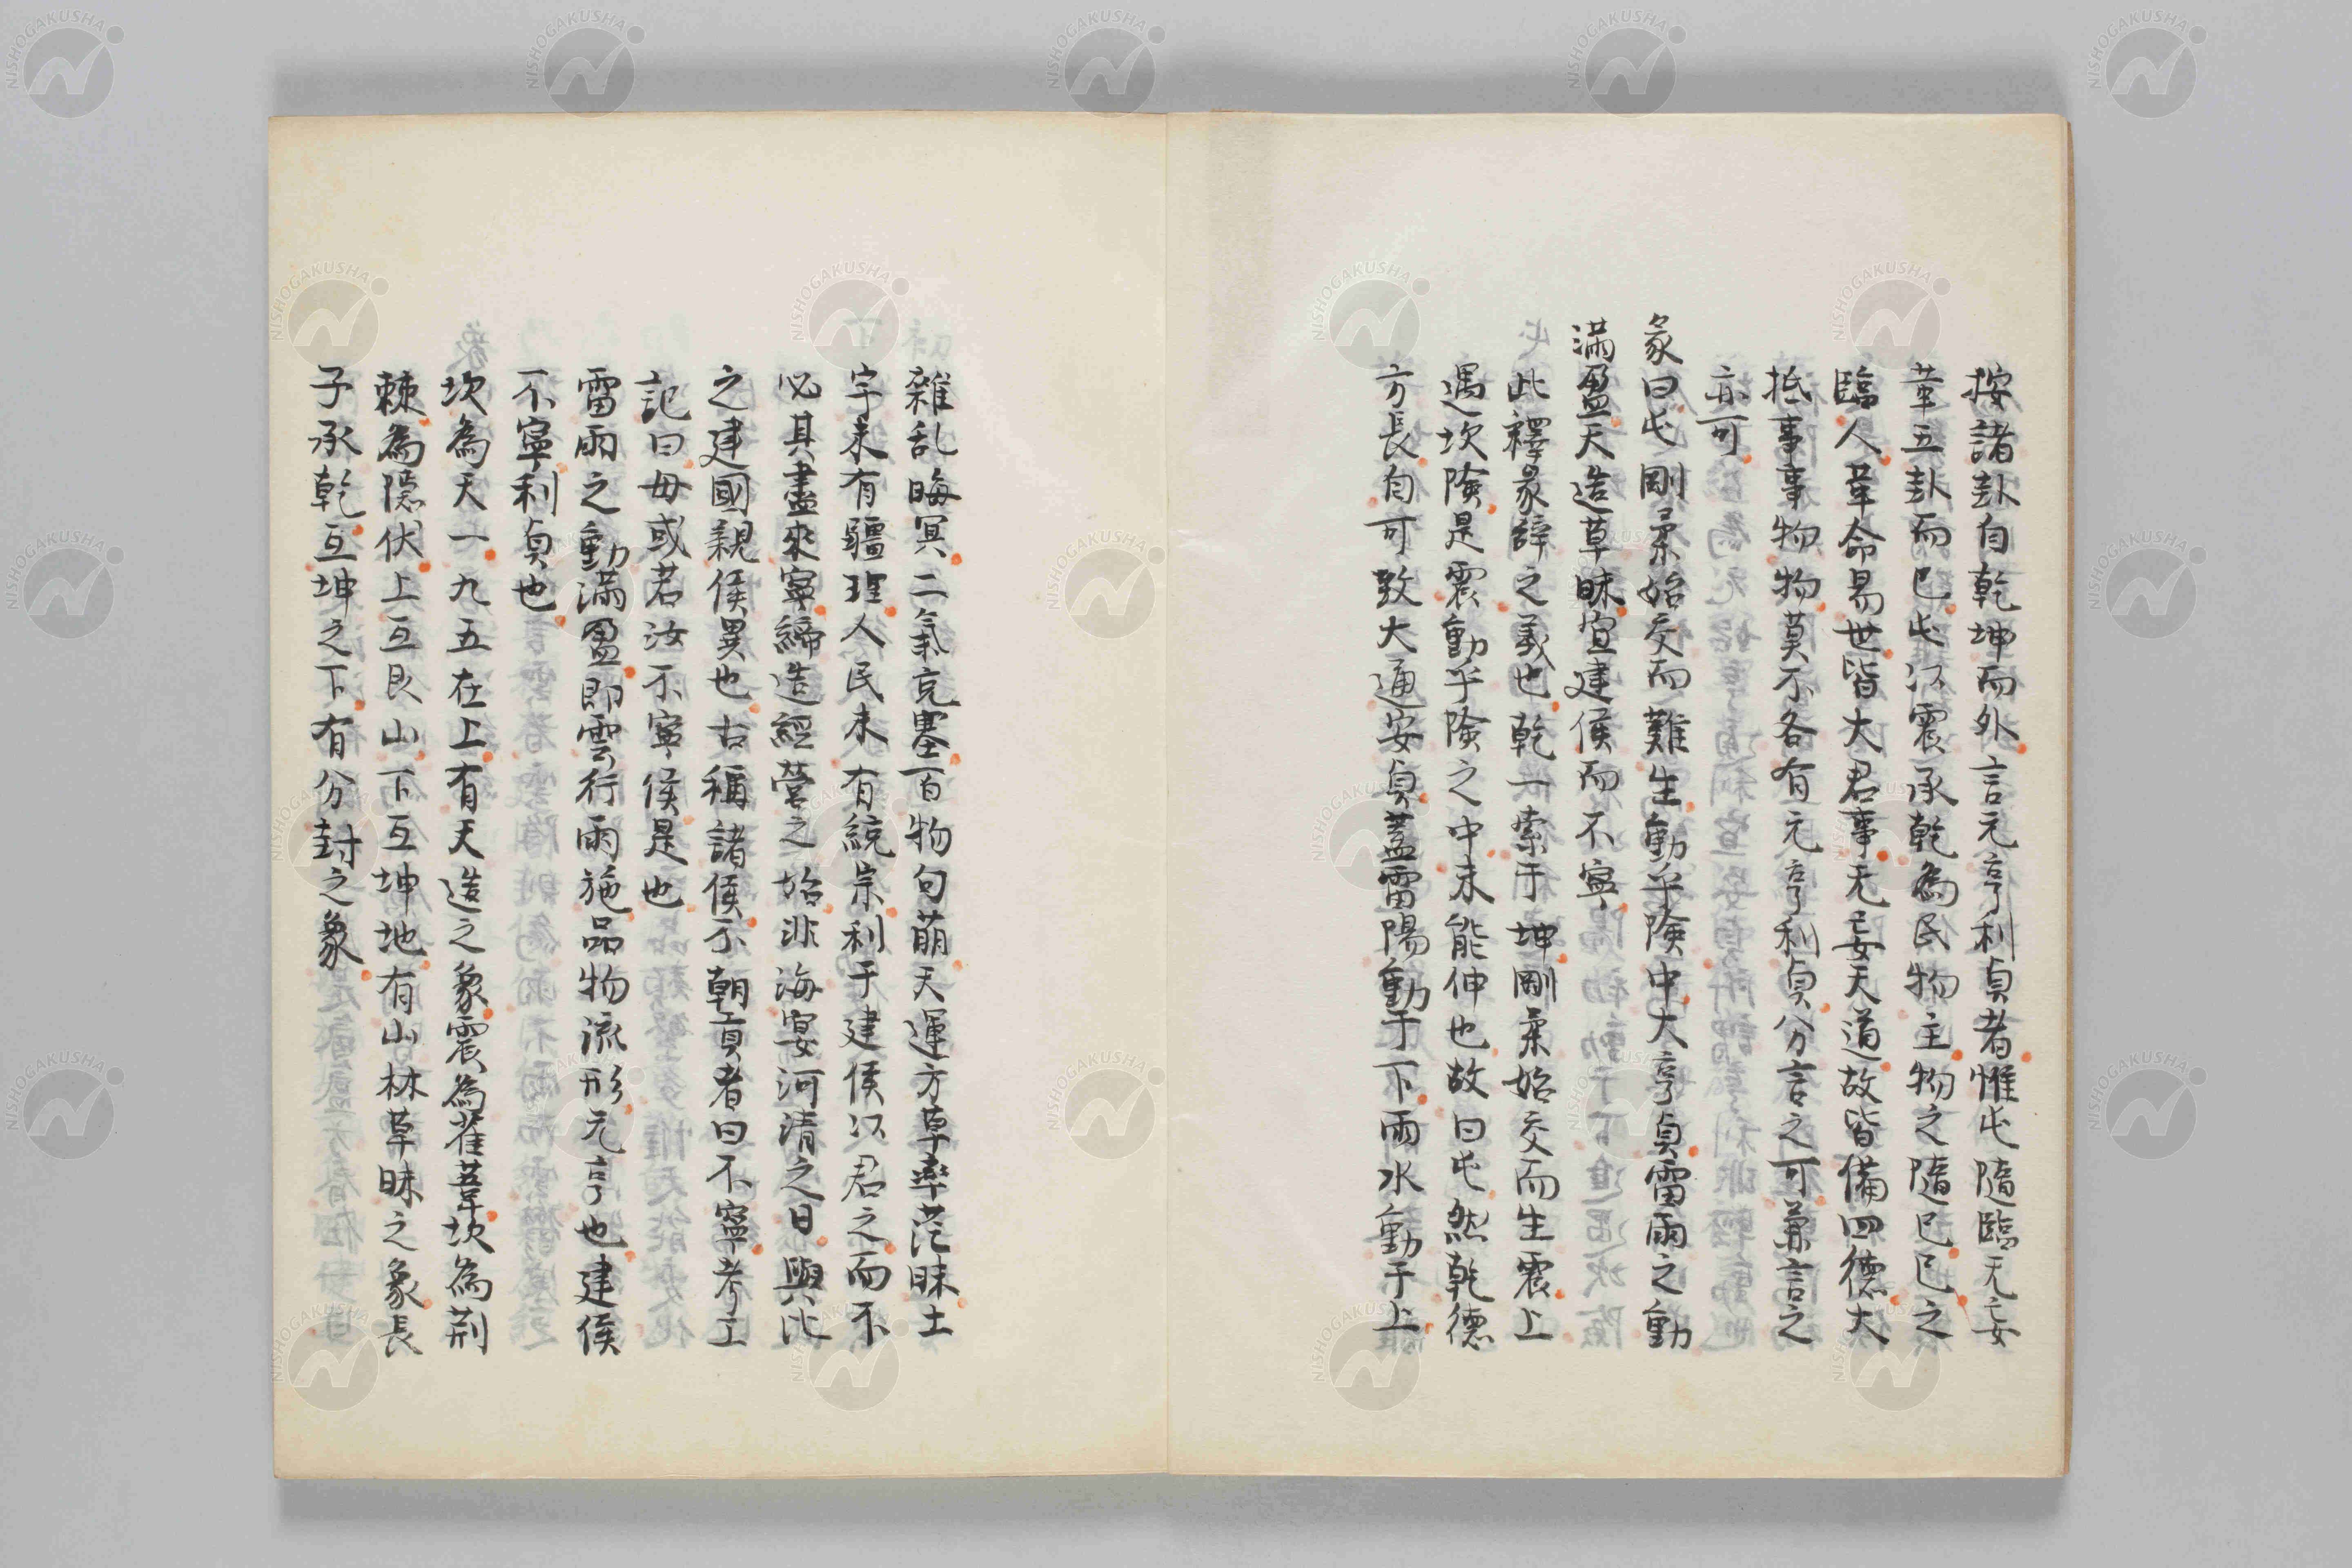 按諸卦自乾坤而外言元亨利貞者惟屯隨臨无妄
革五卦而已屯以震承乾為民物主物之隨已已之
臨人革命易世皆大君事无妄天道故皆備四德大
抵事事物物莫不各有元亨利貞分言之可兼言之
亦可
彖曰屯剛柔始交而難生動乎険中大亨貞雷雨之動
滿盈天造草昧宜建侯而不寧
此釋彖辭之義也乾一索于坤剛柔始交而生震上
遇坎険是震動乎険之中未能伸也故曰屯然乾德
方長自可致大通安貞蓋雷陽動于下雨水動于上
雜乱晦冥二氣充塞百物句萠天運方草率茫昧土
宇未有疆理人民未有統宗利于建侯以君之而不
必其盡來寧締造經營之始非海宴河清之日與比
之建國親侯異也古稱諸侯不朝貢者曰不寧考工
記曰毋或若汝不寧侯是也
雷雨之動滿盈即雲行雨施品物流形元亨也建侯
不寧利貞也
坎為天一九五在上有天造之象震為萑葦坎為荆
棘為隱伏上互艮山下互坤地有山林草昧之象長
子承乾互坤之下有分封之象
NISHOGAKUSHA